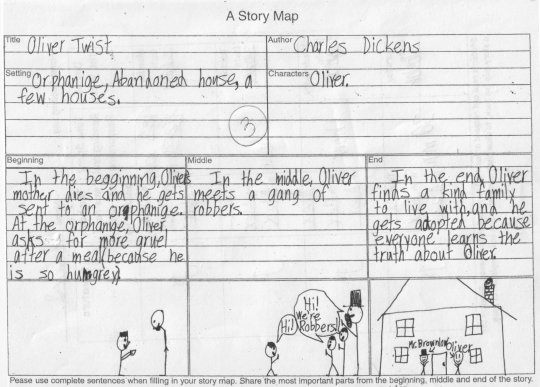 A Story Map
Title Oliver Twist
Author Charles Dickens
Setting Orphanige, Abandoned house, a
few houses.
Characters Oliver.
3
Beginning
In the begginning, Oliver's
mother dies and he gets
sent to an orphanige.
At the orphanige, Oliver
asks for more gruel
after a meal (because he
is so humgrey)
Middle
In the middle, Oliver
meets a gang of
robbers.
End
In the end, Oliver
finds a kind family
to live with, and he
gets adopted because
everyone learns the
truth about Oliver.
Hi!
Hi!
We're
Robbers!
Mr. Brownlow
Oliver
Pease use complete sentences when filling in your story map. Share the most important parts from the beginning, middle and end of the story.